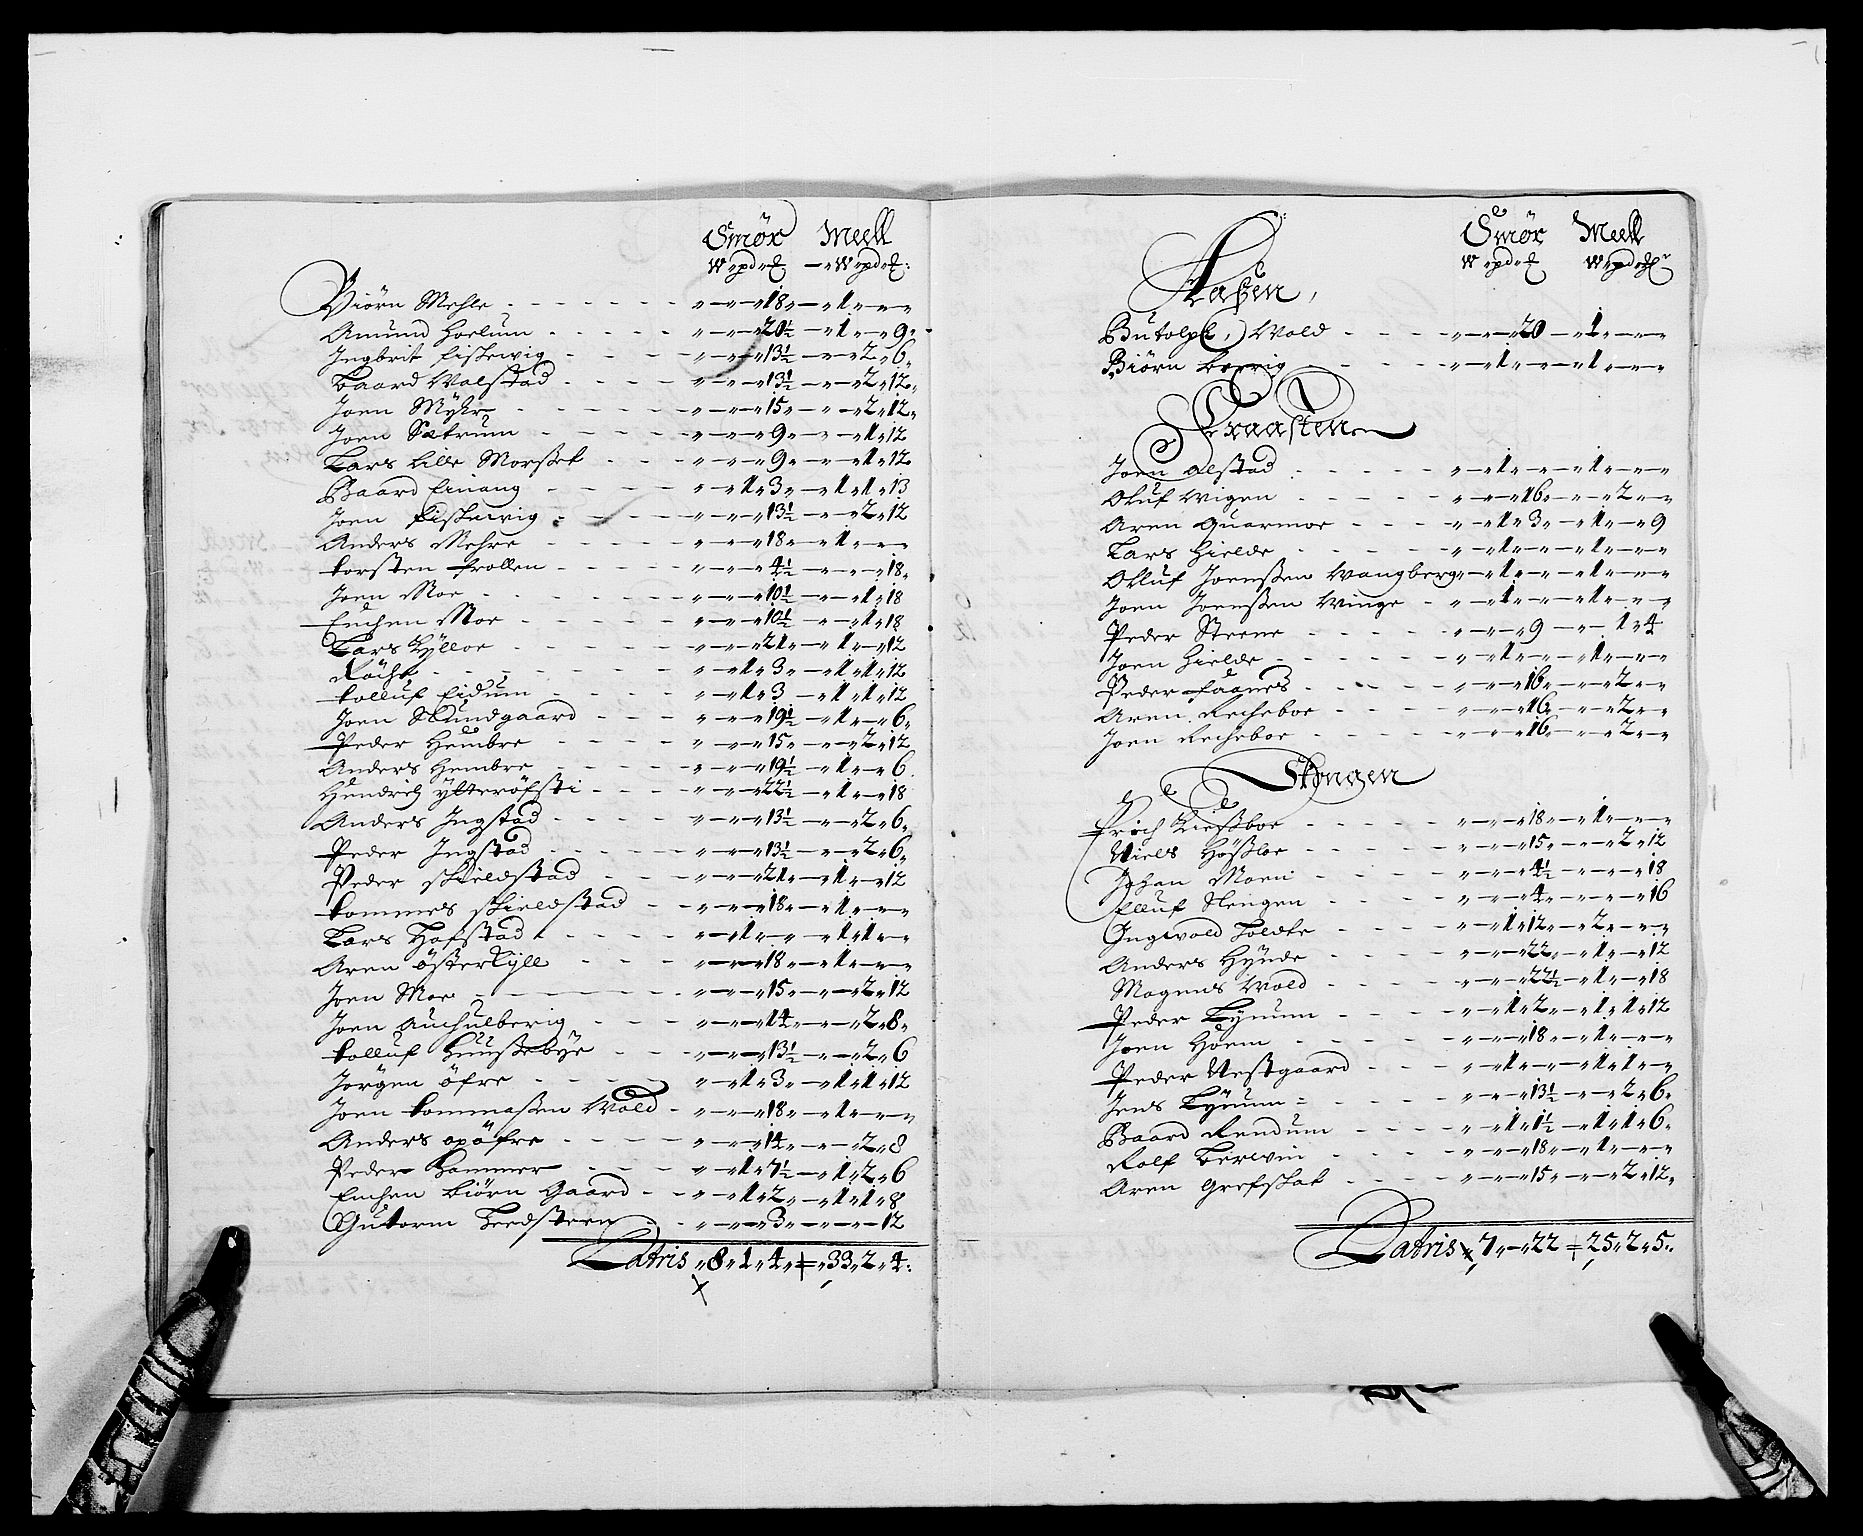 Smör Meell
W pd ℔ — W pd ℔
Biörn Mehle - - - - - - „—„—„18„—„1„—„—„
Amund Hoelum - - - - - „—„—„20½ —„1„—„9„
Ingbrit Fiskewig - - - - „—„—„13½ —„—„2„6„
Baard Walstad - - - - „—„—„13½ —„—„2„12„
Joen Mykr - - - - - „—„—„15„—„—„2„12„
Joen Sætrum - - - - „—„—„9„—„—„1„12
Lars Lille Morsset - - - „—„—„9„—„—„1„12
Baard Einang - - - - „—„1„3„—„1„1„13
Joen Fiskewig - - - - „—„—„13½ —„—„2„12
Anders Mehre - - - - „—„—„18„—„1„—„—„
Torsten Trollen - - - - „—„—„4½ —„—„—„18„
Joen Moe - - - - - „—„—„10½ —„—„1„18
Enchen Moe - - - - - „—„—„10½ —„—„1„18
Lars Kylloe - - - - „—„—„21„—„1„—„12
Röcke - - - - - „—„1„3„—„1„1„12
Tolluf Eidum - - - - „—„1„3 —„1„1„12
Joen Stundgaard - - - „—„—„19½ —„1„—„6„
Peder Hembre - - - - „—„—„15„—„—„2„12
Anders Hembre - - - - „—„—„19½ —„1„—„6
Hendrich ytteröfsti - - - „—„—„22½ —„1„—„18
Anders Ingstad - - - - „—„—„13½ —„—„2„6„
Peder Ingstad - - - - „—„—„13½ —„—„2„6„
Peder skielstad - - - „—„—„21„—„1„—„12
Tommes skielstad - - „—„—„18„—„1„—„—„
Lars Hofstad - - - - „—„1„—„—„1„1„—„
Aren österkyll - - - „—„—„18„—„1„—„—„
Joen Moe - - - - - „—„—„15„—„—„2„12
Joen Auchulberig - - - „—„—„14„—„—„2„8„
Tolluf Hunssebye - - - „—„—„13½ —„—„2„6
Jörgen öfre - - - - „—„1„3„—„1„1„12
Joen Tommassen Wold - „—„—„18„—„1„—„—„
Anders opöfre - - - - „—„—„14„—„—„2„8
Peder Hammer - - - „—„1„7½ —„1„2„6
Enchen Biörn Gaard - - „—„1„2„—„1„1„8
Gutorm Leedsteen - - „—„—„3„—„—„—„12
Latris „8„1„4„ = „33„2„4„
Smör Meell
W pd ℔ W pd ℔
Aasen,
Butolph, Wold - - - - „—„—„20 —„1„—„—„
Biörn Berrig - - - - „—„1„—„—„1„—„—„
Fraasten
Joen Alstad - - - - „—„1„—„—„1„—„—„
Oluf Wigen - - - - „—„—„16„—„—„2„—„
Aren Quarmoe - - - - „—„1„3„—„1„—„9
Lars Hielde - - - - „—„1„—„—„1„—„—„
Olluf Joenssen Wangberg „—„1„—„—„1„—„—„
Joen Joenssen Winge - „—„1„—„—„1„—„—„
Peder Steene - - - - „—„—„9 —„—„1„4
Joen Hielde - - - - „—„1„—„—„1„—„—„
Peder Faanes - - - - „—„—„16„—„—„2„—„
Aren Recheboe - - - - „—„—„16„—„—„2„—„
Joen Recheboe - - - - „—„—„16„—„—„2„—„
Skongen
Erich Liessboe - - - - „—„—„18„—„1„—„—„
Niels Hössloe - - - - „—„—„15„—„—„2„12
Johan Moen - - - - „—„—„4½ —„—„—„18
Elluf Slengen - - - - „—„—„4„—„—„—„16
Ingwold Toldte - - - - „—„1„12„—„2„—„—„
Anders Hynde - - - - „—„—„22„—„1„—„12
Mogens Wold - - - - „—„—„22½ —„1„—„18
Peder Lynum - - - - „—„1„2„—„1„1„12
Joen Hoem - - - - „—„—„18„—„1„—„—„
Peder Nestgaard - - - „—„1„—„—„1„1„—„
Jens Lynum - - - - „—„—„13½ —„—„2„6„
Baard Rendum - - - - „—„1„1½ —„1„1„6„
Rolf Berwin - - - - „—„—„18„—„1„—„—„
Aren Grefskat - - - - „—„—„15„—„—„2„12„
Latris „7„—„22 = 25„2„5„